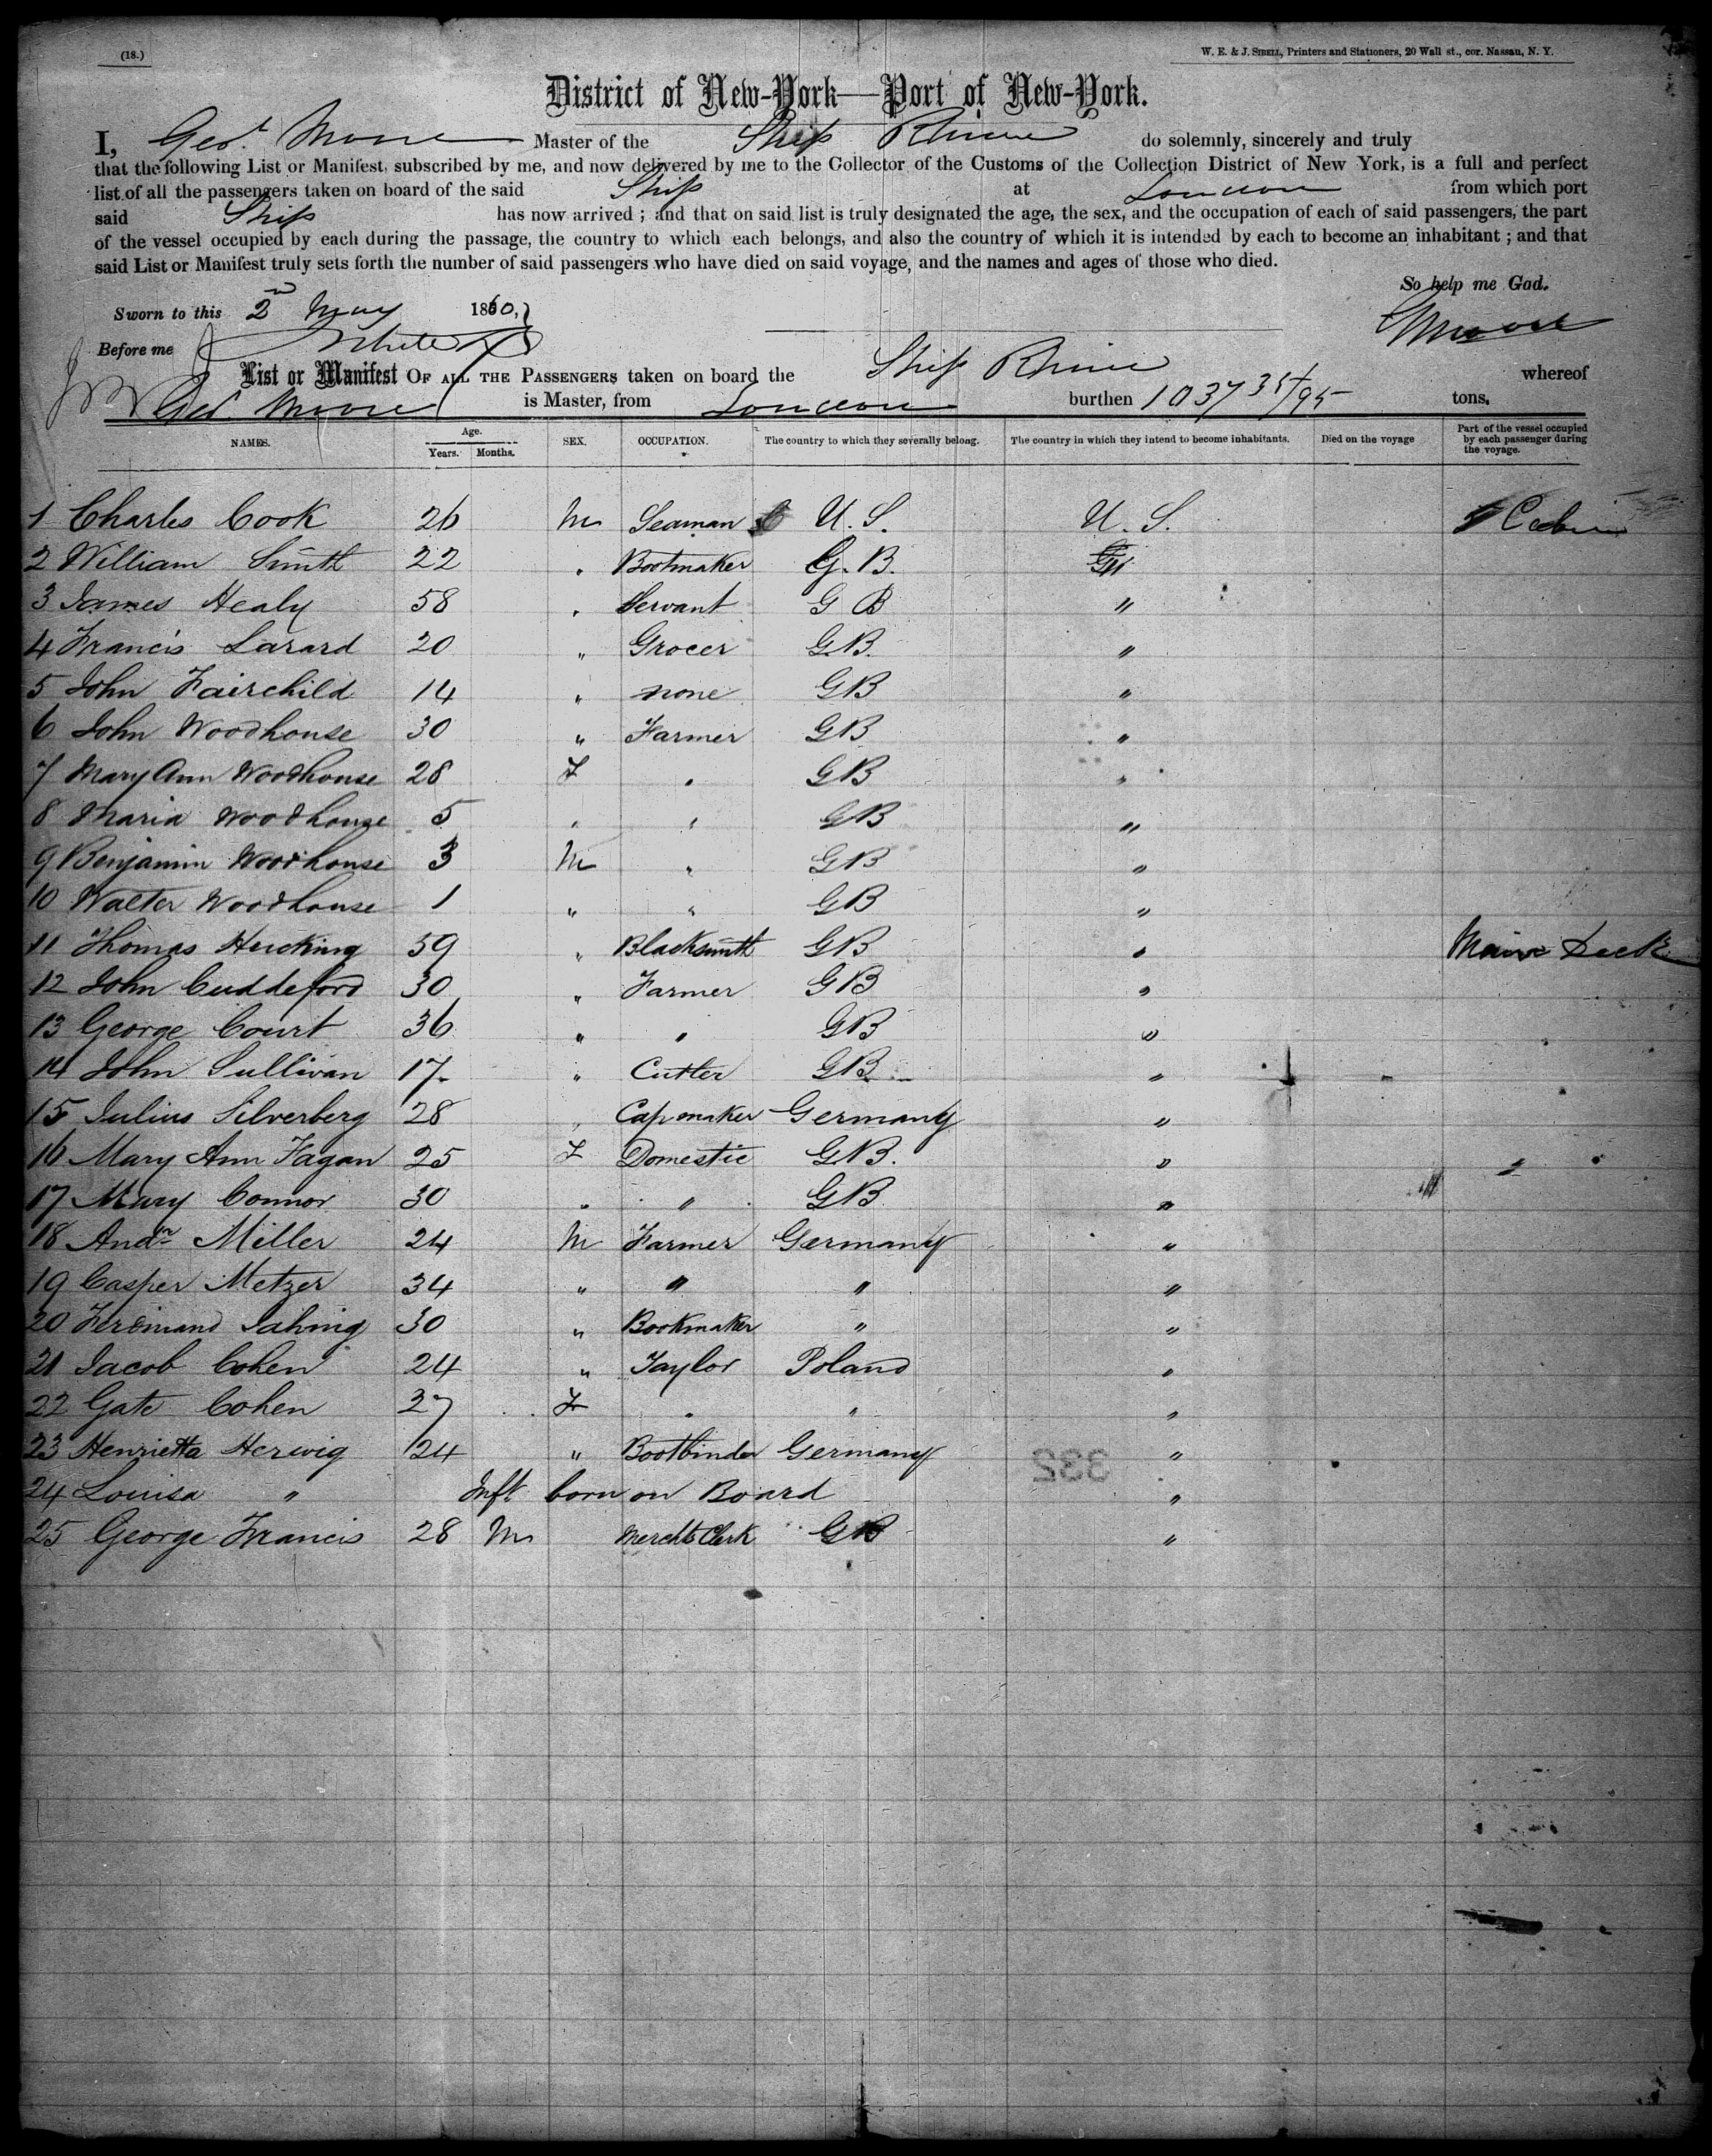 (18.)
W. E. & J. SIBELL, Printers and Stationers, 20 Wall st., cor. Nassau, N. Y.
District of New-York—Port of New-York.
I, Geo. Moore Master of the Ship Rhine do solemnly, sincerely and truly
that the following List or Manifest, subscribed by me, and now delivered by me to the Collector of the Customs of the Collection District of New York, is a full and perfect
list of all the passengers taken on board of the said Ship at London from which port
said Ship has now arrived ; and that on said list is truly designated the age, the sex, and the occupation of each of said passengers, the part
of the vessel occupied by each during the passage, the country to which each belongs, and also the country of which it is intended by each to become an inhabitant ; and that
said List or Manifest truly sets forth the number of said passengers who have died on said voyage, and the names and ages of those who died.
So help me God.
Sworn to this 2 May 1860,
G Moore
Before me
List or Manifest OF ALL THE PASSENGERS taken on board the Ship Rhine whereof
Geo. Moore is Master, from London burthen 1037 35/95 tons.
NAMES. Age. Years. Months. SEX. OCCUPATION. The country to which they severally belong. The country in which they intend to become inhabitants. Died on the voyage Part of the vessel occupied by each passenger during the voyage.
1 Charles Cook 26 M Seaman U. S. U. S. Cabin
2 William Smith 22 " Bootmaker G. B. "
3 James Healy 58 " Servant G B "
4 Francis Larard 20 " Grocer G.B. "
5 John Fairchild 14 " none GB "
6 John Woodhouse 30 " Farmer GB "
7 Mary Ann Woodhouse 28 F " GB "
8 Maria Woodhouse 5 " " GB "
9 Benjamin Woodhouse 3 M " GB "
10 Walter Woodhouse 1 " " GB "
11 Thomas Heicking 59 " Blacksmith GB " Main Deck
12 John Cuddeford 30 " Farmer GB "
13 George Court 36 " " GB "
14 John Sullivan 17 " Cutler GB "
15 Julius Silverberg 28 " Capmaker Germany "
16 Mary Ann Fagan 25 F Domestic G.B. " "
17 Mary Connor 30 " " GB "
18 Andw Miller 24 M Farmer Germany "
19 Casper Metzer 34 " " " "
20 Ferdinand Jahnig 30 " Bookmaker " "
21 Jacob Cohen 24 " Taylor Poland "
22 Gate Cohen 27 F " " "
23 Henrietta Herwig 24 " Bootbinder Germany "
24 Louisa " Inft born on Board "
25 George Francis 28 M Merchts Clerk GB "
332